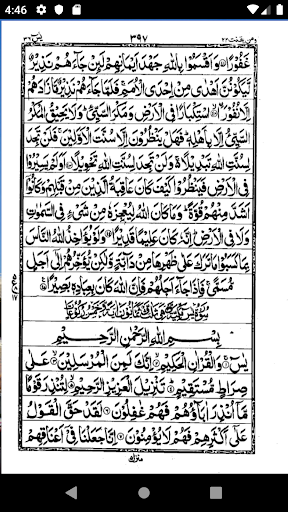 4:46
یٰسٓ ٣٦
٣٩٧
ومن یقنت ٢٢
غَفُوْرًا وَاَقْسَمُوْا بِاللّٰهِ جَهْدَ اَيْمَانِهِمْ لَىِٕنْ جَآءَهُمْ نَذِيْرٌ
لَّيَكُوْنُنَّ اَهْدٰى مِنْ اِحْدَى الْاُمَمِ فَلَمَّا جَآءَهُمْ نَذِيْرٌ مَّا زَادَهُمْ
اِلَّا نُفُوْرًا اسْتِكْبَارًا فِى الْاَرْضِ وَمَكْرَ السَّيِّئِ وَلَا يَحِيْقُ الْمَكْرُ
السَّيِّئُ اِلَّا بِاَهْلِهٖ فَهَلْ يَنْظُرُوْنَ اِلَّا سُنَّتَ الْاَوَّلِيْنَ فَلَنْ تَجِدَ
لِسُنَّتِ اللّٰهِ تَبْدِيْلًا وَلَنْ تَجِدَ لِسُنَّتِ اللّٰهِ تَحْوِيْلًا اَوَلَمْ يَسِيْرُوْا
فِى الْاَرْضِ فَيَنْظُرُوْا كَيْفَ كَانَ عَاقِبَةُ الَّذِيْنَ مِنْ قَبْلِهِمْ وَكَانُوْٓا
اَشَدَّ مِنْهُمْ قُوَّةً وَمَا كَانَ اللّٰهُ لِيُعْجِزَهٗ مِنْ شَىْءٍ فِى السَّمٰوٰتِ
وَلَا فِى الْاَرْضِ اِنَّهٗ كَانَ عَلِيْمًا قَدِيْرًا وَلَوْ يُؤَاخِذُ اللّٰهُ النَّاسَ
بِمَا كَسَبُوْا مَا تَرَكَ عَلٰى ظَهْرِهَا مِنْ دَآبَّةٍ وَّلٰكِنْ يُّؤَخِّرُهُمْ اِلٰٓى اَجَلٍ
مُّسَمًّى فَاِذَا جَآءَ اَجَلُهُمْ فَاِنَّ اللّٰهَ كَانَ بِعِبَادِهٖ بَصِيْرًا
بِسْمِ اللّٰهِ الرَّحْمٰنِ الرَّحِيْمِ
يٰسٓ وَالْقُرْاٰنِ الْحَكِيْمِ اِنَّكَ لَمِنَ الْمُرْسَلِيْنَ عَلٰى
صِرَاطٍ مُّسْتَقِيْمٍ تَنْزِيْلَ الْعَزِيْزِ الرَّحِيْمِ لِتُنْذِرَ قَوْمًا
مَّآ اُنْذِرَ اٰبَآؤُهُمْ فَهُمْ غٰفِلُوْنَ لَقَدْ حَقَّ الْقَوْلُ
عَلٰٓى اَكْثَرِهِمْ فَهُمْ لَا يُؤْمِنُوْنَ اِنَّا جَعَلْنَا فِىْٓ اَعْنَاقِهِمْ
منزل